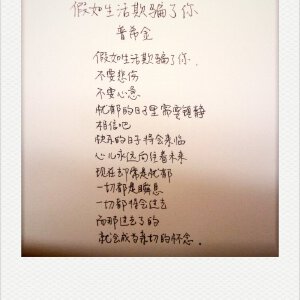 假如生活欺骗了你
普希金
假如生活欺骗了你，
不要悲伤
不要心急
忧郁的日子里需要镇静
相信吧
快乐的日子将会来临
心儿永远向往着未来
现在却常是忧郁
一切都是瞬息
一切都将会过去
而那过去了的
就会成为亲切的怀念．